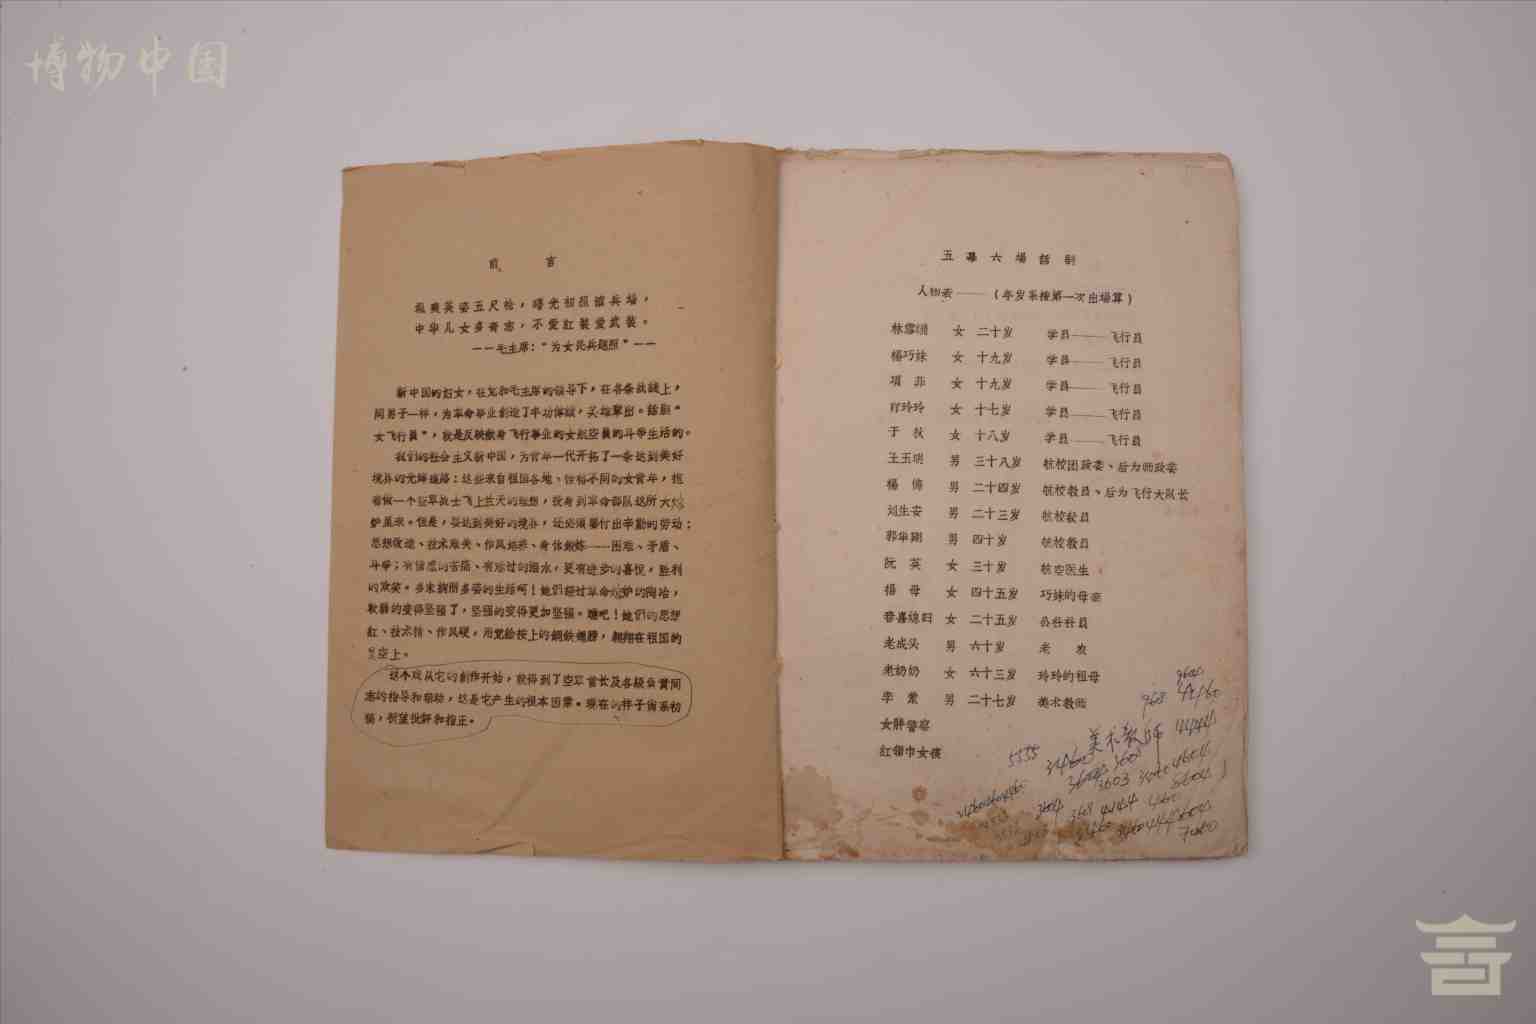 博物中国
前言
飒爽英姿五尺枪，曙光初照演兵场，
中华儿女多奇志，不爱红装爱武装。
——毛主席：“为女民兵题照”——
新中国的妇女，在党和毛主席的领导下，在各条战线上，
同男子一样，为革命事业创造了丰功伟绩，英雄辈出。话剧“
女飞行員”，就是反映献身飞行事业的女航空員的斗争生活的。
我们的社会主义新中国，为青年一代开拓了一条达到美好
境界的光辉道路：这些来自祖国各地、性格不同的女青年，抱
着做一个空军战士飞上兰天的理想，投身到革命部队这所大熔
炉里来。但是，要达到美好的境界，还必须要付出辛勤的劳动；
思想改造、技术难关、作风培养、身体锻炼——困难、矛盾、
斗争；有惭愧的苦痛、有难过的泪水，更有进步的喜悦，胜利
的欢笑。多末绚丽多姿的生活呵！她们经过革命熔炉的陶冶，
软弱的变得坚强了，坚强的变得更加坚强。瞧吧！她们的思想
红、技术精、作风硬，用党给按上的钢铁翅膀，翱翔在祖国的
星空上。
这个戏从它的创作开始，就得到了空军首长及各級负責同
志的指导和帮助，这是它产生的根本因素。现在的样子尚系初
稿，希望批评和指正。
五幕六場話剧
人物表——（年岁系按第一次出場算）
林雪征 女 二十岁 学員——飞行員
楊巧妹 女 十九岁 学員——飞行員
項菲 女 十九岁 学員——飞行員
肖玲玲 女 十七岁 学員——飞行員
于 女 十八岁 学員——飞行員
王玉明 男 三十八岁 航校团政委、后为师政委
楊倚 男 二十四岁 航校教員、后为飞行大队长
刘生安 男 二十三岁 航校教員
郭华剛 男 四十岁 航校教員
阮英 女 三十岁 航空医生
楊母 女 四十五岁 巧妹的母亲
春喜媳妇 女 二十五岁 公社社員
老成头 男 六十岁 老农
老奶奶 女 六十三岁 玲玲的祖母
李 男 二十七岁 美术教师
女胖警察
红領巾女孩
美术教师
5555
3603